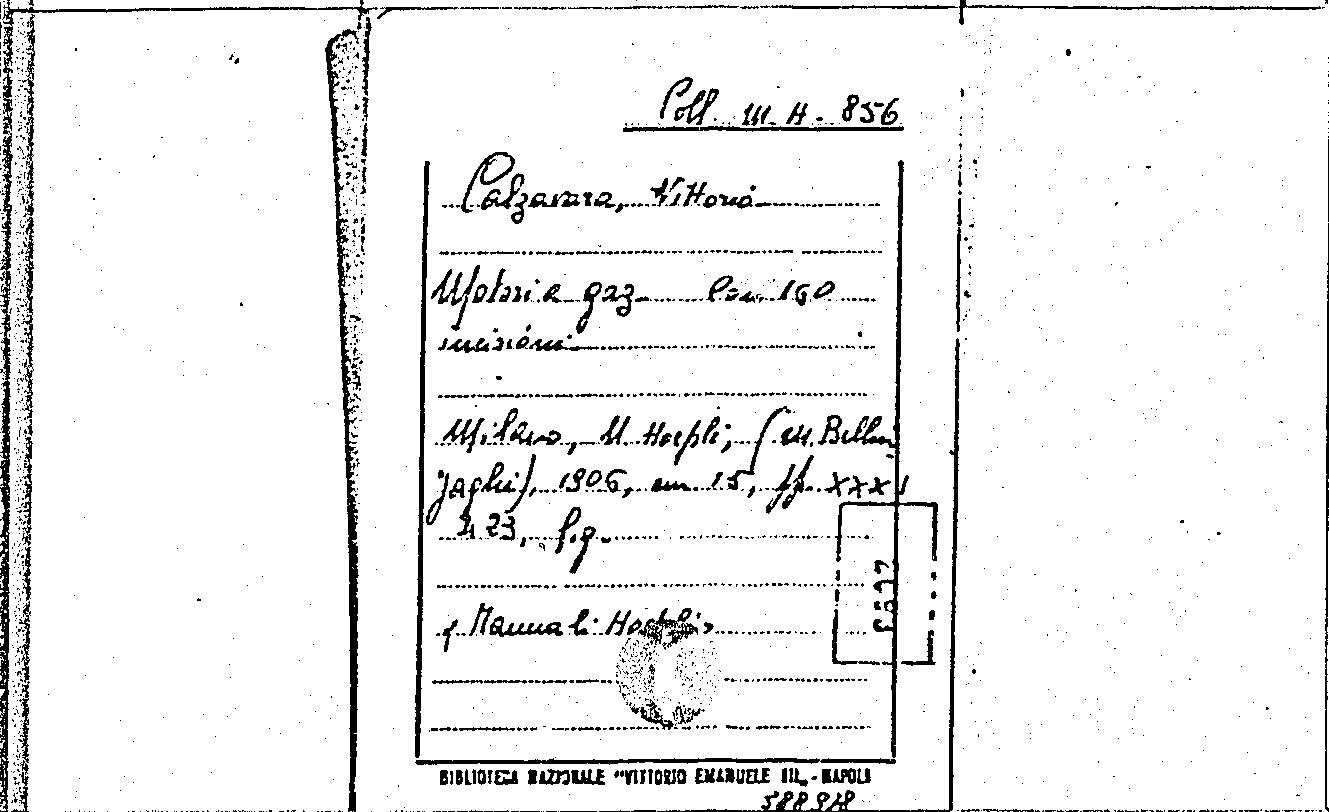 Coll. M. H. 856
Calzavara, Vittorio
Motori a gaz. Con 160
incisioni
Milano, U. Hoepli, (M. Bellin
zaghi), 1906, cm 15, pp. XXXI
423, fig.
« Manuali Hoepli »
BIBLIOTECA NAZIONALE "VITTORIO EMANUELE III„ - NAPOLI